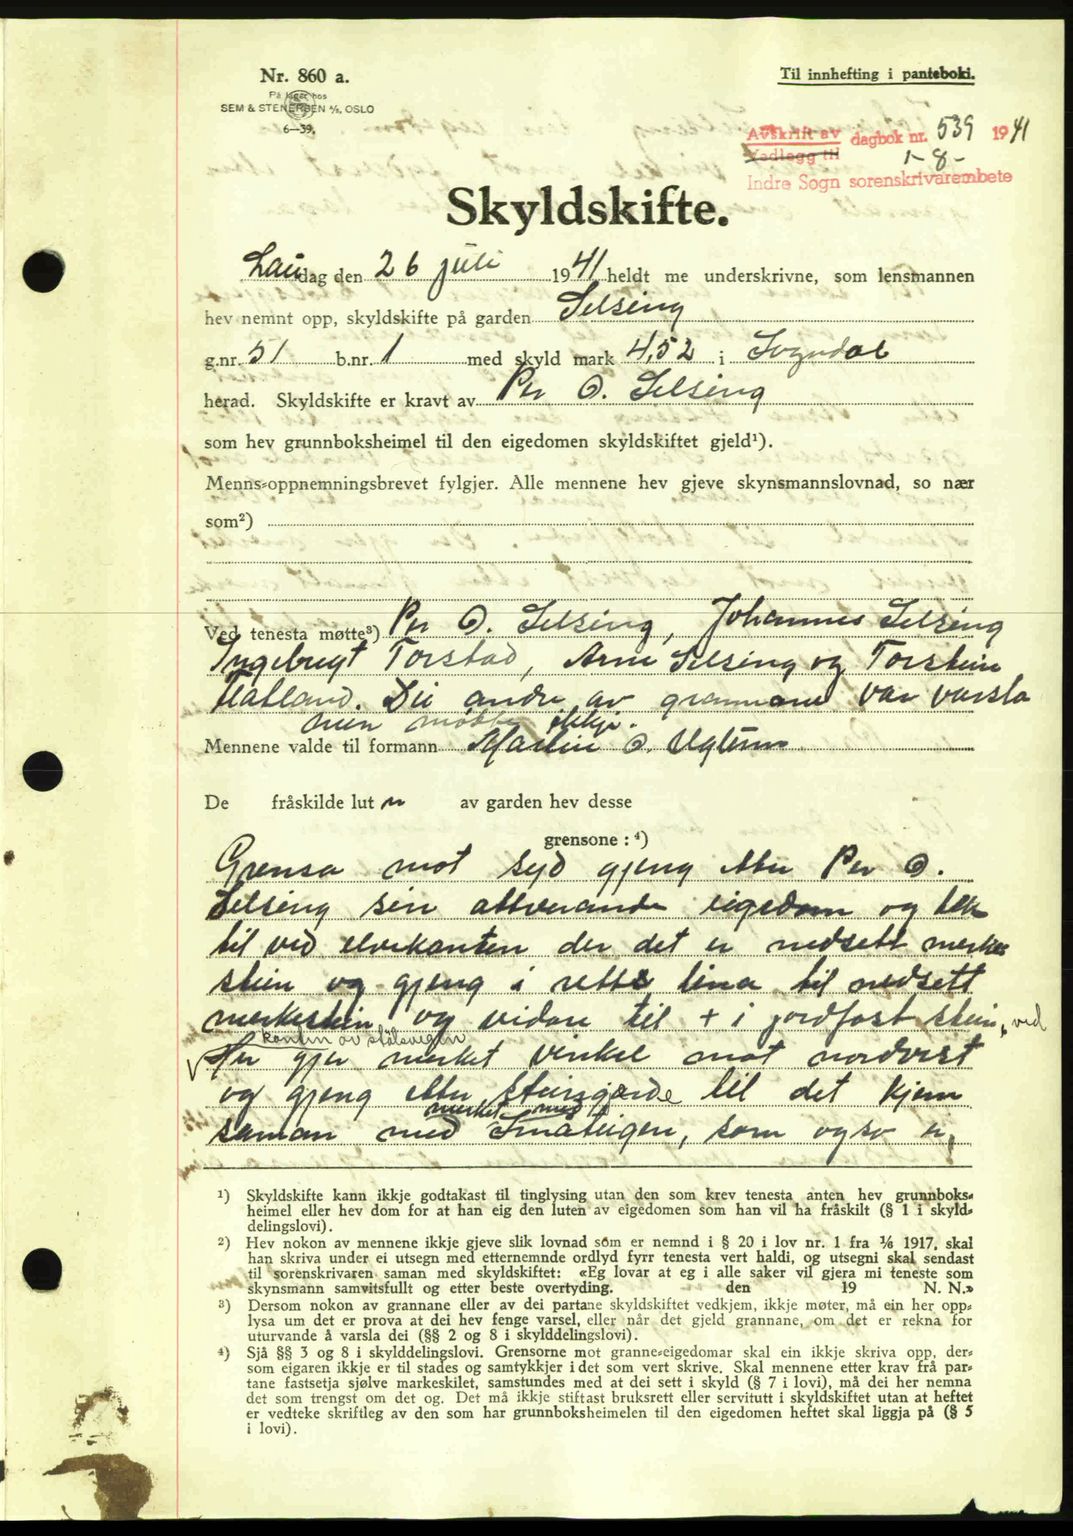 Nr. 860 a.
På lager hos
SEM & STENERSEN A/S, OSLO
6—39.
Til innhefting i panteboki.
Avskrift av
Vedlegg til
dagbok nr. 539 1941
1-8-
Indre Sogn sorenskrivarembete
Skyldskifte.
Laudag den 26 juli 1941 heldt me underskrivne, som lensmannen
hev nemnt opp, skyldskifte på garden Selseng
g.nr. 51 b.nr. 1 med skyld mark 4,52 i Sogndal
herad. Skyldskifte er kravt av Per O. Selseng
som hev grunnboksheimel til den eigedomen skyldskiftet gjeld¹).
Menns-oppnemningsbrevet fylgjer. Alle mennene hev gjeve skynsmannslovnad, so nær
som²)
Ved tenesta møtte³) Per O. Selseng, Johannes Selseng
Ingebrigt Torstad, Arne Selseng og Torstein
Hatland. Dei andre av grannane var varsla
men møtte ikkje.
Mennene valde til formann Martin O. Uglum
De fråskilde luter av garden hev desse
grensone: ⁴)
Grensa mot syd gjeng etter Per O.
Selseng sin attverande eigedom og tek
til ved elvekanten der det er nedsett merke
stein og gjeng i rette lina til nedsett
merkestein og vidare til + i jordfast stein, ved
kanten av stålsvegen
Her gjer merket vinkel mot nordvest
og gjeng etter steinsgarde til det kjem
merket med
saman med Småteigen, som ogso er
¹) Skyldskifte kann ikkje godtakast til tinglysing utan den som krev tenesta anten hev grunnboks-
heimel eller hev dom for at han eig den luten av eigedomen som han vil ha fråskilt (§ 1 i skyld-
delingslovi).
²) Hev nokon av mennene ikkje gjeve slik lovnad som er nemnd i § 20 i lov nr. 1 fra 1/6 1917, skal
han skriva under ei utsegn med etternemnde ordlyd fyrr tenesta vert haldi, og utsegni skal sendast
til sorenskrivaren saman med skyldskiftet: «Eg lovar at eg i alle saker vil gjera mi teneste som
skynsmann samvitsfullt og etter beste overtyding. den 19 N. N.»
³) Dersom nokon av grannane eller av dei partane skyldskiftet vedkjem, ikkje møter, må ein her opp-
lysa um det er prova at dei hev fenge varsel, eller når det gjeld grannane, om det er rekna for
uturvande å varsla dei (§§ 2 og 8 i skylddelingslovi).
⁴) Sjå §§ 3 og 8 i skylddelingslovi. Grensorne mot granne-eigedomar skal ein ikkje skriva opp, der-
som eigaren ikkje er til stades og samtykkjer i det som vert skrive. Skal mennene etter krav frå par-
tane fastsetja sjølve markeskilet, samstundes med at dei sett i skyld (§ 7 i lovi), må dei her nemna
det som trengst om det og. Det må ikkje stiftast bruksrett eller servitutt i skyldskiftet utan at heftet
er vedteke skriftleg av den som har grunnboksheimelen til den eigedomen heftet skal liggja på (§ 5
i lovi).